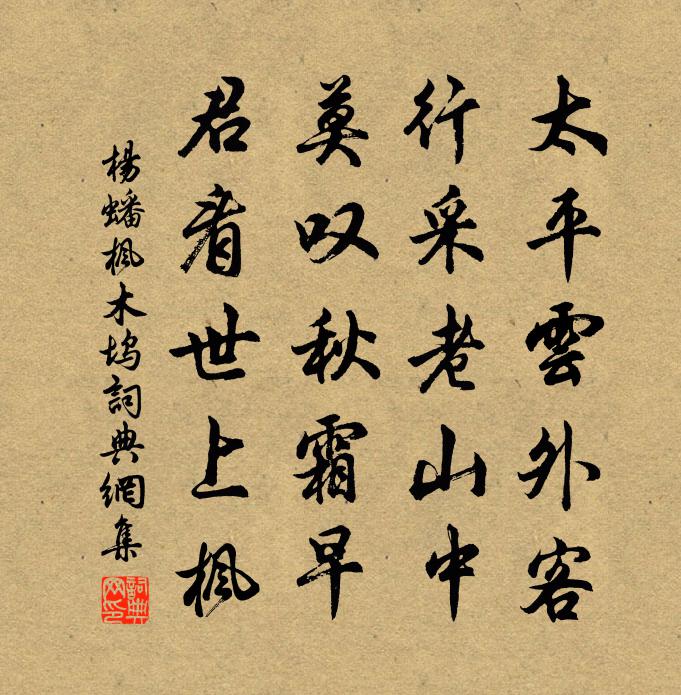 太平雲外客
行采老山中
莫叹秋霜早
君看世上楓
楊蟠楓木塢詞典網集
詞典网印